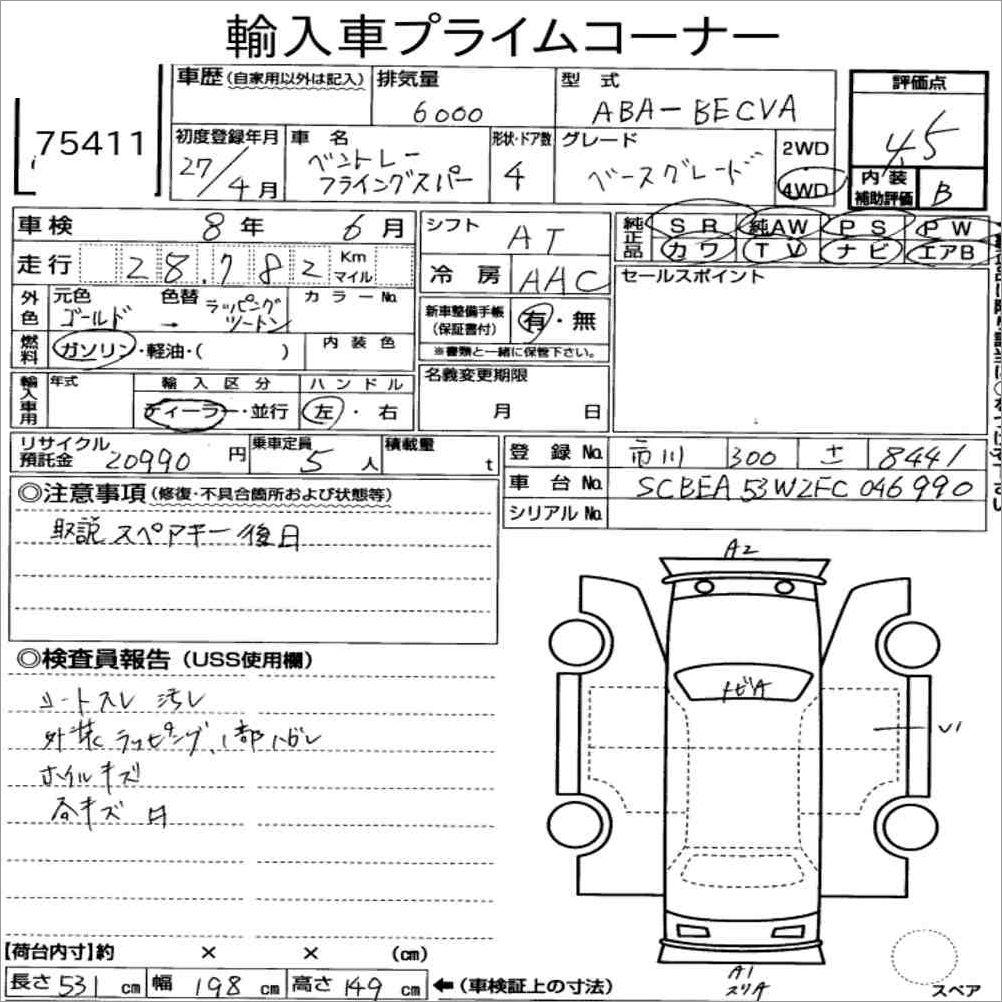 輸入車プライムコーナー
75411
車歴(自家用以外は記入) 排気量 6000 型式 ABA-BECVA
評価点 4.5
内装補助評価 B
初度登録年月 27/4月 車名 ベントレー フライングスパー 形状・ドア数 4 グレード ベースグレード 2WD 4WD
車検 8年 6月
走行 28,782 Km マイル
外色 元色 ゴールド 色替 → ラッピング ツートン カラーNo.
燃料 ガソリン・軽油・( ) 内装色
輸入車用 年式 輸入区分 ディーラー・並行 ハンドル 左・右
シフト AT
冷房 AAC
新車整備手帳(保証書付) 有・無
※書類と一緒に保管下さい。
名義変更期限 月 日
純正品 SR 純AW PS PW
カワ TV ナビ エアB
セールスポイント
リサイクル預託金 20990円 乗車定員 5人 積載量 t
登録No. 市川 300 8441
車台No. SCBEA53W2FC046990
シリアルNo.
◎注意事項(修復・不具合箇所および状態等)
取説 スペアキー 後日
◎検査員報告(USS使用欄)
シートスレ 汚レ
外装 ラッピング、1部ハガレ
ホイルキズ
各キズ
A2
トビA
A1
スリA
【荷台内寸】約 × × (cm)
長さ 531 cm 幅 198 cm 高さ 149 cm ←(車検証上の寸法)
スペア